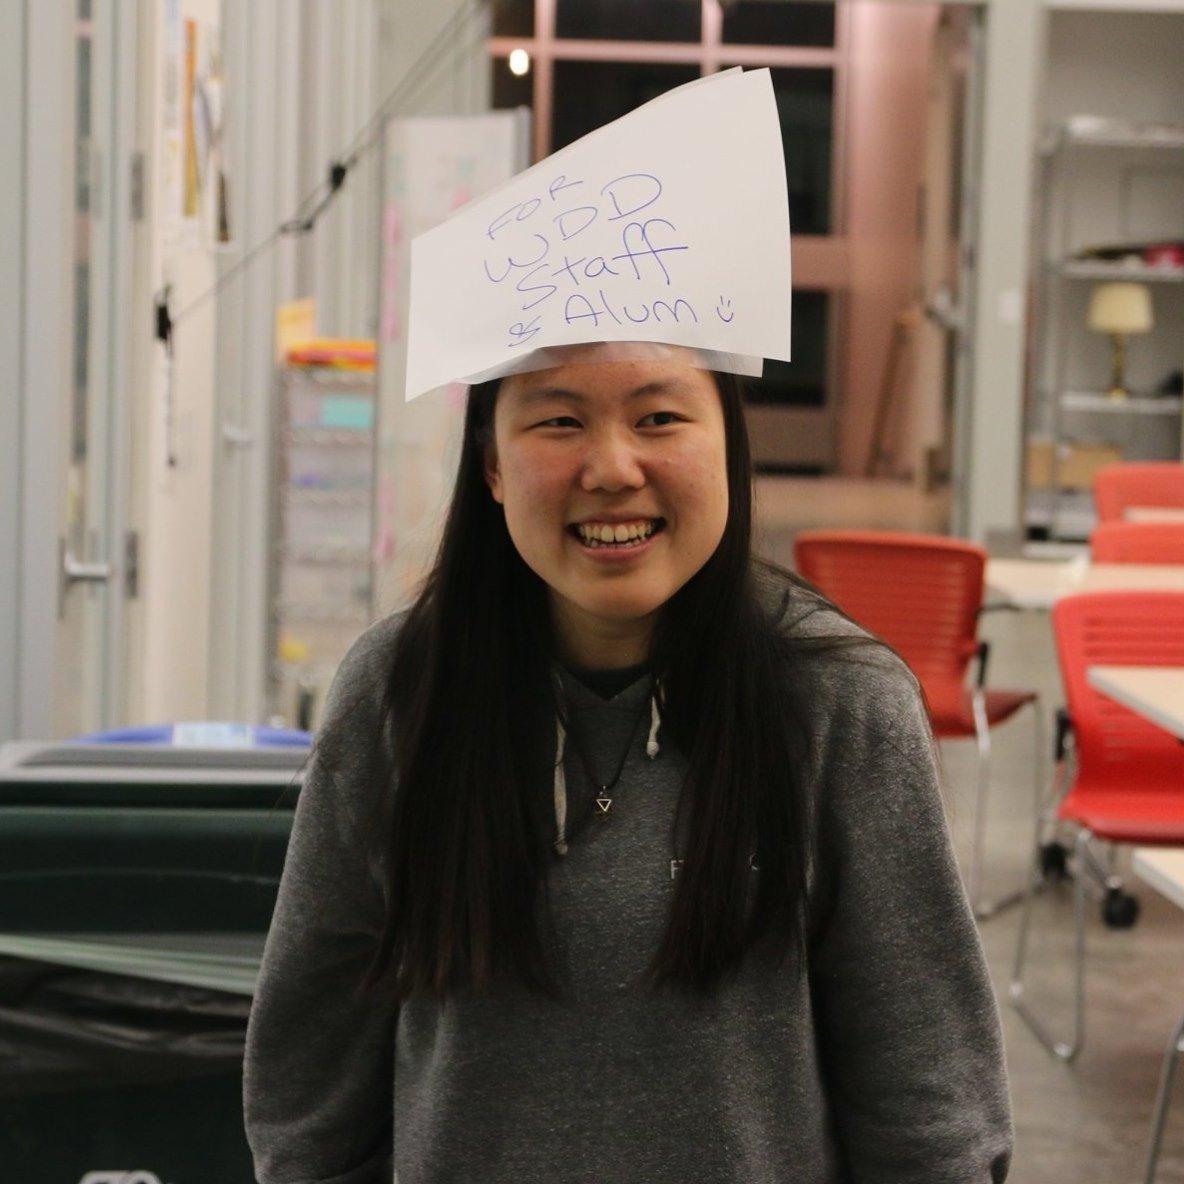 FOR
WDD
Staff
& Alum :)